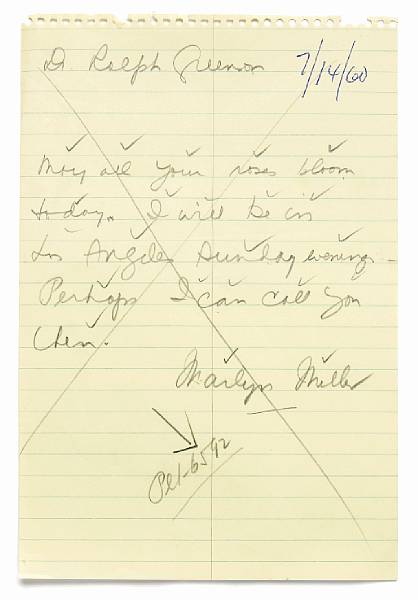 Dr Ralph Greenson
7/14/60
May all your roses bloom
today. I will be in
Los Angeles Sunday evening -
Perhaps I can call you
then.
Marilyn Miller
Pl1-6592